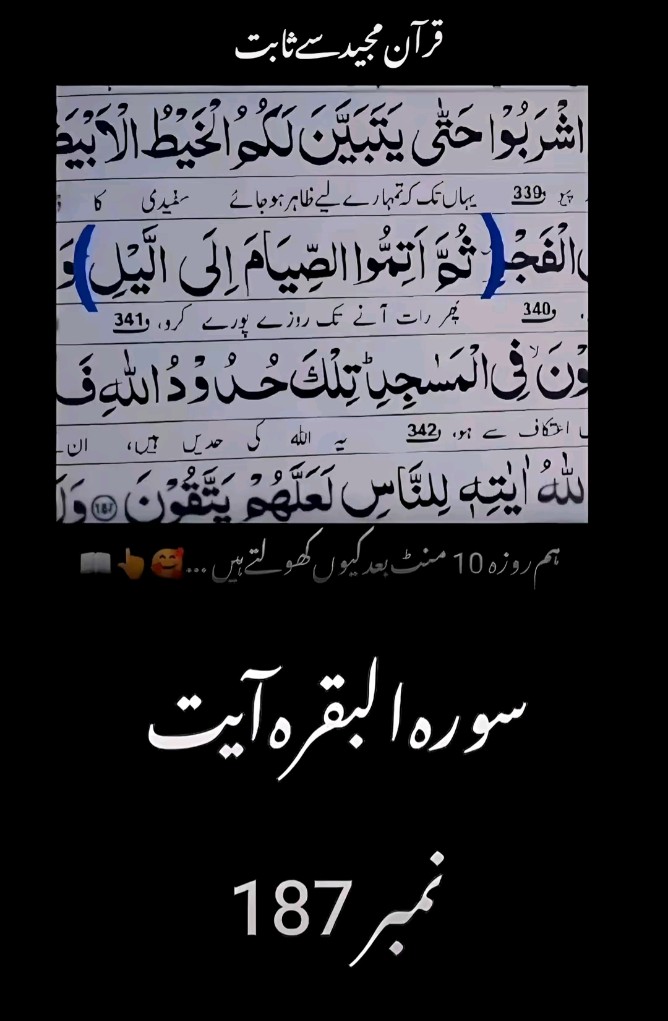 قرآن مجید سے ثابت
اشْرَبُوْا حَتّٰى يَتَبَيَّنَ لَكُمُ الْخَيْطُ الْاَبْيَضُ
پیو 339 یہاں تک کہ تمہارے لیے ظاہر ہو جائے سفیدی کا
الْفَجْرِ (ثُمَّ اَتِمُّوا الصِّيَامَ اِلَى الَّيْلِ) وَ
340 پھر رات آنے تک روزے پورے کرو، و341
وْنَ فِى الْمَسٰجِدِ ؕ تِلْكَ حُدُوْدُ اللّٰهِ فَ
اعتکاف سے ہو، و342 یہ اللہ کی حدیں ہیں، ان
اللّٰهُ اٰيٰتِهٖ لِلنَّاسِ لَعَلَّهُمْ يَتَّقُوْنَ ۝187 وَلَا
ہم روزہ 10 منٹ بعد کیوں کھولتے ہیں ...🥰👆📖
سورہ البقرہ آیت
نمبر 187